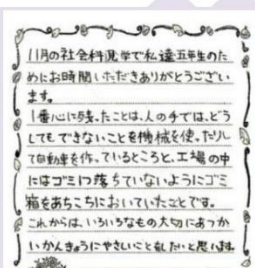 11月の社会科見学で私達五年生のた
めにお時間いただきありがとうござい
ます。
1番心に残ったことは、人の手では、どう
してもできないことを機械を使ったりし
て自動車を作っているところと、工場の中
にはゴミ1つ落ちていないようにゴミ
箱をあちこちにおいていたことです。
これからは、いろいろなもの大切にあつか
いかんきょうにやさしいことをしたいと思います